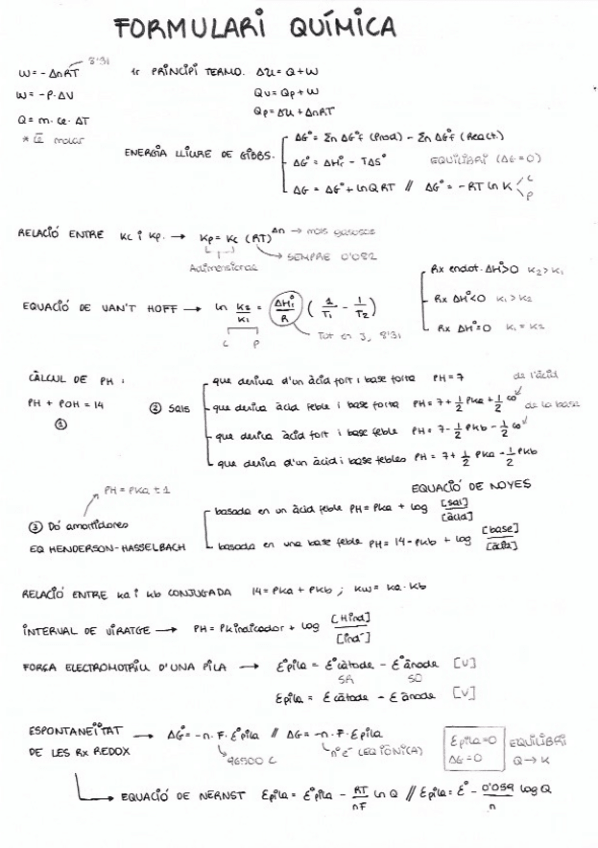 FORMULARI QUÍMICA
W = -ΔnRT 8'31 1r PRINCIPI TERMO. ΔU = Q + W
W = -P·ΔV Qv = Qp + W
Q = m·ce·ΔT Qp = ΔU + ΔnRT
* molar
ENERGIA LLIURE DE GIBBS.
ΔG° = Σn ΔG°f (Prod) - Σn ΔG°f (React.)
ΔG° = ΔH°r - TΔS° EQUILIBRI (ΔG=0)
ΔG = ΔG° + LnQRT // ΔG° = -RT Ln K c p
RELACIÓ ENTRE Kc i Kp. → Kp = Kc (RT)^Δn → mols gasosos
Adimensional SEMPRE 0'082
Rx endot. ΔH>0 K₂>K₁
Rx ΔH°<0 K₁>K₂
Rx ΔH°=0 K₁=K₂
EQUACIÓ DE VAN'T HOFF → Ln K₂/K₁ = ΔH°r/R (1/T₁ - 1/T₂)
c p Tot en J, 8'31
CÀLCUL DE PH:
PH + POH = 14
①
② Sals
que deriva d'un àcid fort i base forta PH = 7 de l'àcid
que deriva àcid feble i base forta PH = 7 + 1/2 PKa + 1/2 co de la base
que deriva àcid fort i base feble PH = 7 - 1/2 PKb - 1/2 co
que deriva d'un àcid i base febles PH = 7 + 1/2 PKa - 1/2 PKb
PH = PKa ± 1 EQUACIÓ DE NOYES
③ Dó amortidores
EQ HENDERSON-HASSELBACH
basada en un àcid feble PH = PKa + log [sal]/[àcid]
basada en una base feble PH = 14 - PKb + log [base]/[àcid]
RELACIÓ ENTRE Ka i Kb CONJUGADA 14 = PKa + PKb ; Kw = Ka·Kb
INTERVAL DE VIRATGE → PH = PKindicador + log [HInd]/[Ind⁻]
FORÇA ELECTROMOTRIU D'UNA PILA → Ɛ°pila = Ɛ°càtode - Ɛ°ànode [V]
Ɛpila = Ɛ càtode - Ɛ ànode [V]
ESPONTANEÏTAT DE LES Rx REDOX → ΔG° = -n·F·Ɛ°pila // ΔG = -n·F·Ɛpila
96500 C nº e⁻ (EQ IÒNICA)
Ɛpila = 0
ΔG = 0
EQUILIBRI
Q → K
EQUACIÓ DE NERNST Ɛpila = Ɛ°pila - RT/nF Ln Q // Ɛpila = Ɛ° - 0'059/n log Q